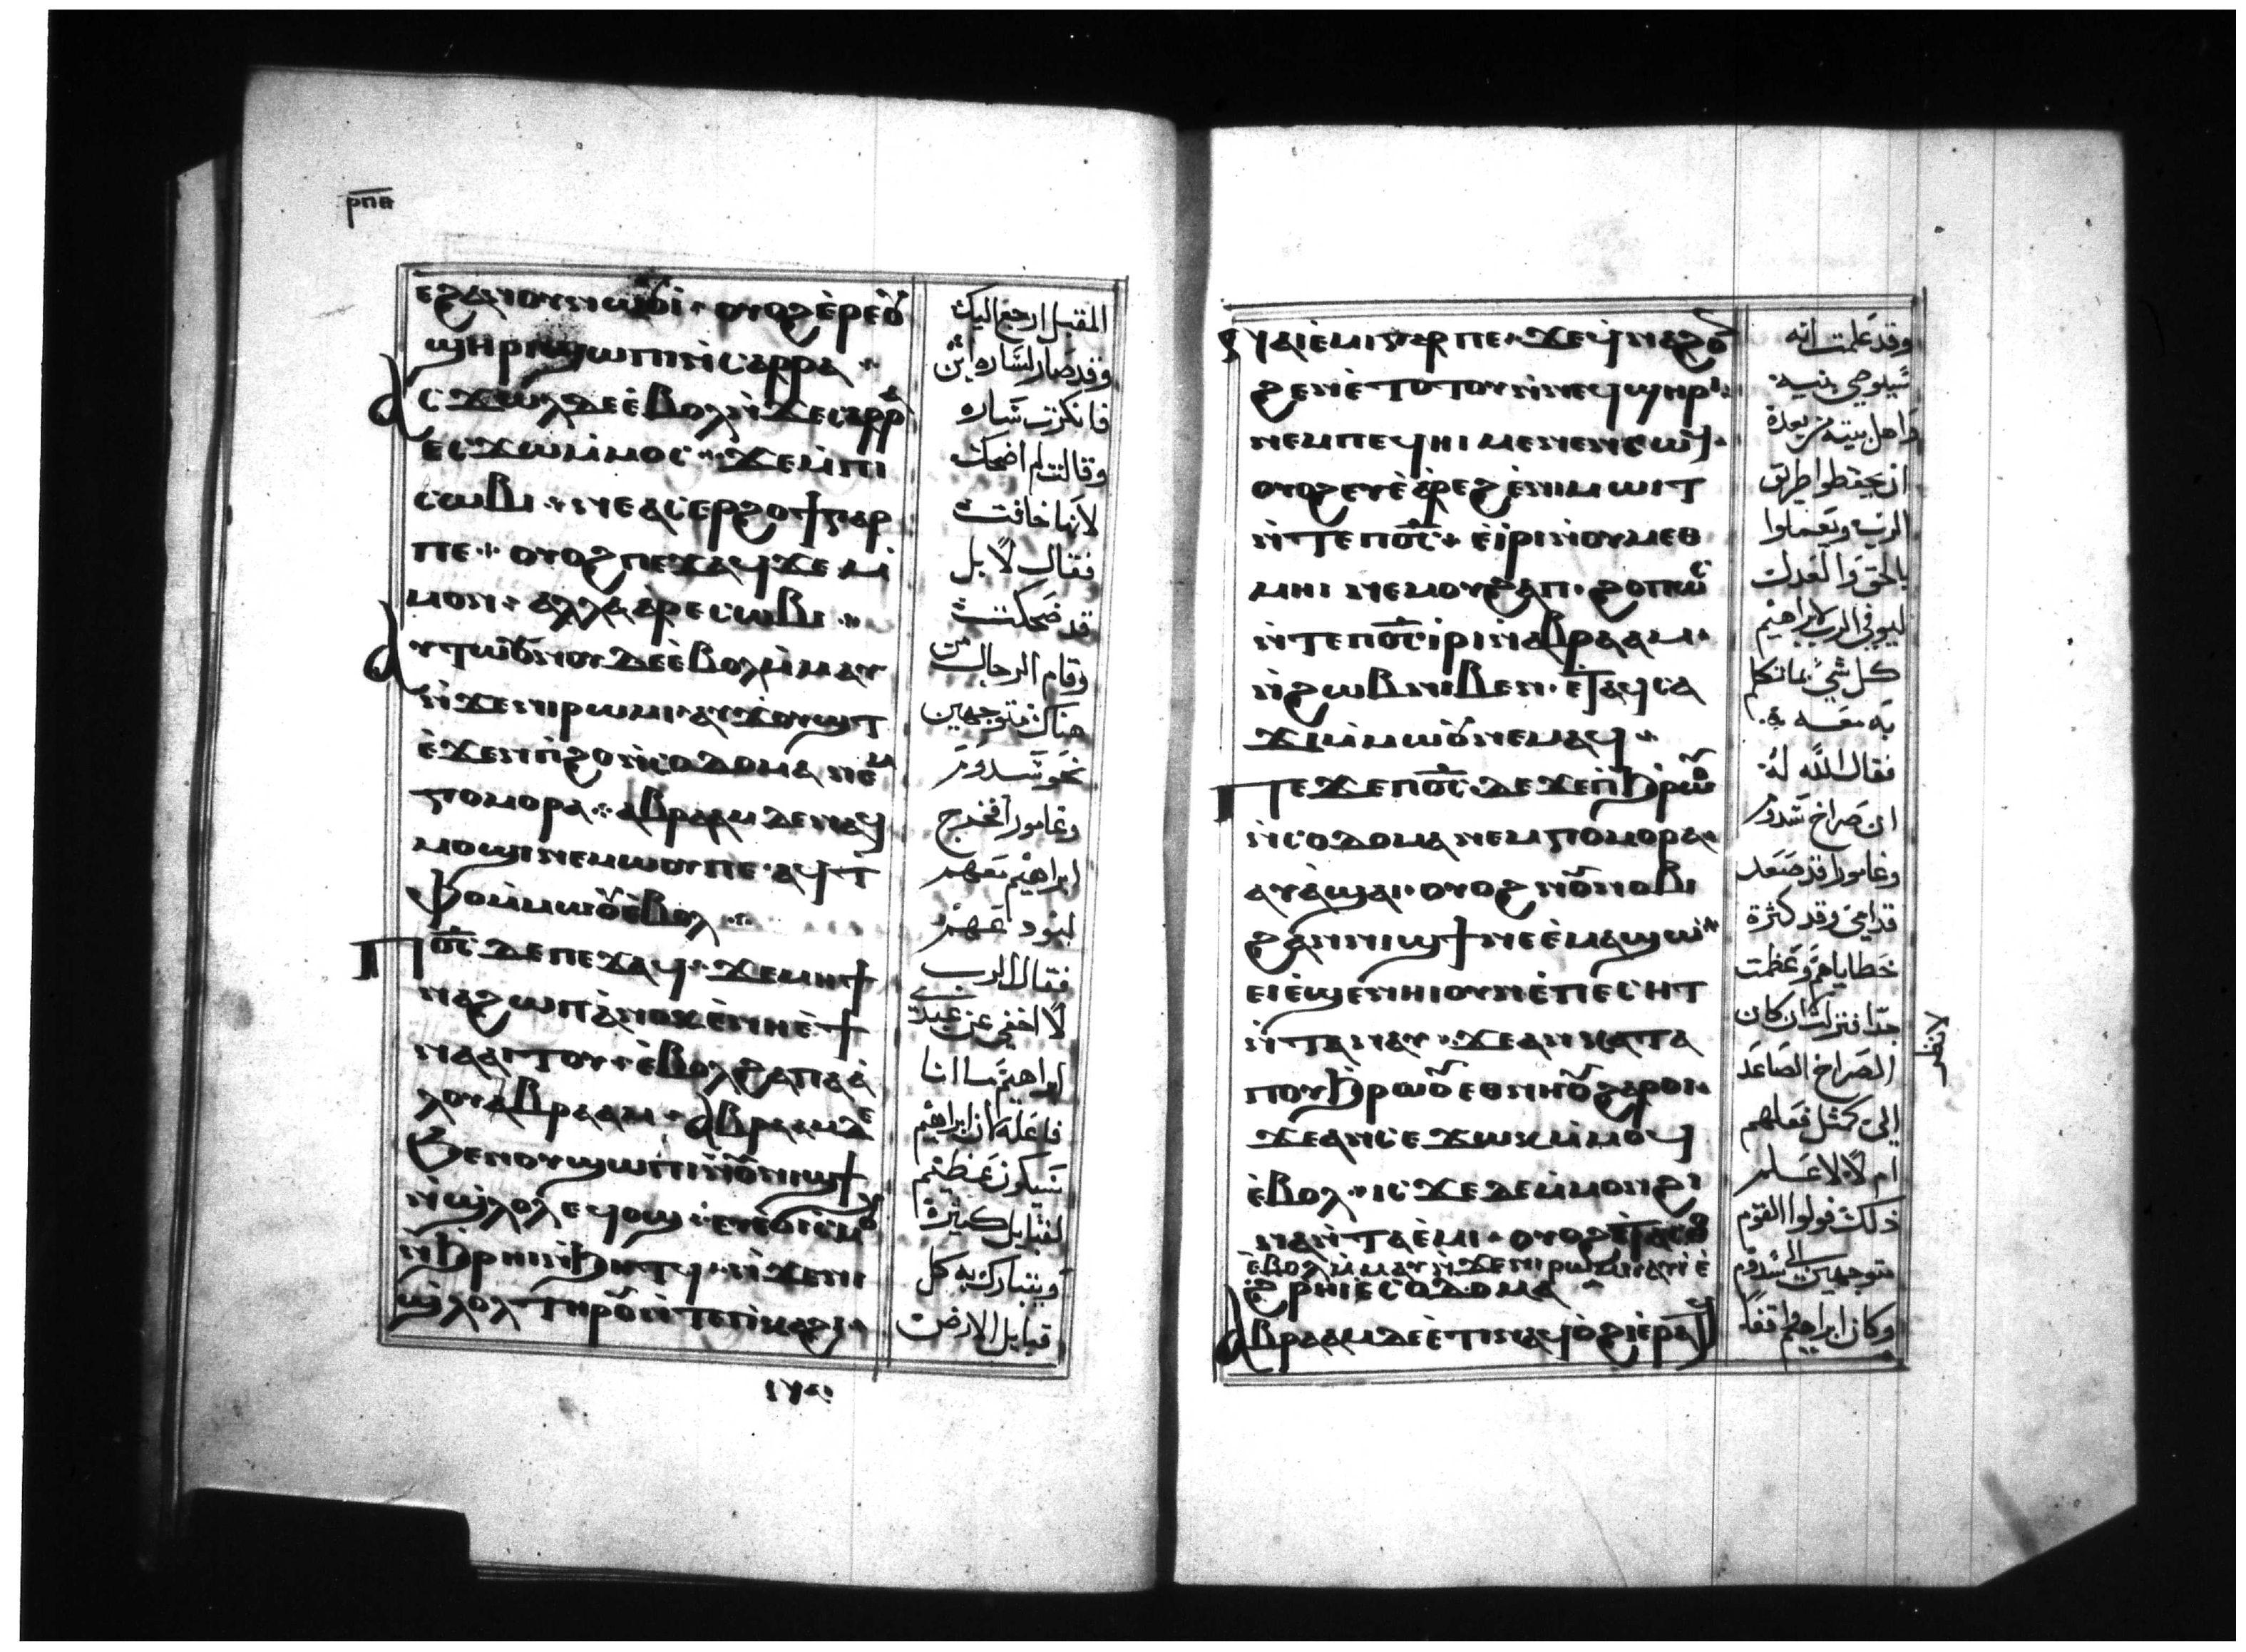 ⲣⲡⲁ
ⲟⲩⲟϩ ⲉ̀ⲣⲉ ⲟⲩ
ϣⲏⲣⲓ ϣⲱⲡⲓ ⲛ̀ⲥⲁⲣⲣⲁ
ⲁⲥϫⲱⲗ ⲇⲉ ⲉ̀ⲃⲟⲗ ⲛ̀ϫⲉ ⲥⲁⲣⲣⲁ
ⲉⲥϫⲱ ⲙ̀ⲙⲟⲥ ϫⲉ ⲙ̀ⲡⲓ
ⲥⲱⲃⲓ ⲛⲉ ⲁⲥⲉⲣϩⲟϯ ⲅⲁⲣ
ⲡⲉ ⲟⲩⲟϩ ⲡⲉϫⲁϥ ϫⲉ ⲙ̀
ⲙⲟⲛ ⲁⲗⲗⲁ ⲁ̀ⲣⲉⲥⲱⲃⲓ
ⲁⲩⲧⲱⲟⲩⲛⲟⲩ ⲇⲉ ⲉ̀ⲃⲟⲗ ⲙ̀ⲙⲁⲩ
ⲛ̀ϫⲉ ⲛⲓⲣⲱⲙⲓ ⲁⲩϫⲟⲩϣⲧ
ⲉ̀ϫⲉⲛ ⲡ̀ϩⲟ ⲛ̀ⲥⲟⲇⲟⲙⲁ ⲛⲉⲙ
ⲅⲟⲙⲟⲣⲣⲁ ⲁⲃⲣⲁⲁⲙ ⲇⲉ ⲛⲁϥ
ⲙⲟϣⲓ ⲛⲉⲙⲱⲟⲩ ⲡⲉ ⲁϥⲧ
ⲫⲟ ⲙ̀ⲙⲱⲟⲩ ⲉ̀ⲃⲟⲗ
ⲡⲟ̅ⲥ̅ ⲇⲉ ⲡⲉϫⲁϥ ϫⲉ ⲙⲏϯ
ⲛⲁϩⲱⲡ ⲁ̀ⲛⲟⲕ ⲉ̀ⲛⲏ ⲉ̀ϯ
ⲛⲁⲁⲓⲧⲟⲩ ⲉ̀ⲃⲟⲗ ϩⲁ ⲡⲁⲁ̀
ⲗⲟⲩ ⲁⲃⲣⲁⲁⲙ ⲁⲃⲣⲁⲁⲙ ⲇⲉ
ϧⲉⲛ ⲟⲩϣⲱⲡⲓ ⲛ̀ⲟⲩⲛⲓϣϯ
ⲛ̀ϣⲗⲟⲗ ⲉϥⲟϣ ⲉⲩⲉ̀ϭⲓⲥ̀ⲙⲟⲩ
ⲛ̀ϧⲣⲏⲓ ⲛ̀ϧⲏⲧϥ ⲛ̀ϫⲉ ⲛⲓ
ϣⲗⲟⲗ ⲧⲏⲣⲟⲩ ⲛ̀ⲧⲉ ⲡ̀ⲕⲁϩⲓ
المقبل ارجع اليك
وقد صار لساره ابن
فانكرت ساره
وقالت لم اضحك
لانها خافت
فقال لا بل
قد ضحكت
وقام الرجال من
هناك متوجهين
نحو سدوم
وغامورا فخرج
ابراهيم معهم
ليودعهم
فقال الرب
لا اخفي عن عبدي
ابراهيم ما انا
فاعله ان ابراهيم
سيكون عظيم
لقبايل كبيره
ويتبارك به كل
قبايل الارض
ⲛⲁⲓⲉ̀ⲙⲓ ⲅⲁⲣ ⲡⲉ ϫⲉ ϥⲛⲁϩⲟⲛ
ϩⲉⲛ ⲉ̀ⲧⲟⲧⲟⲩ ⲛ̀ⲛⲉϥϣⲏⲣⲓ
ⲛⲉⲙ ⲡⲉϥⲏⲓ ⲙⲉⲛⲉⲛⲥⲱϥ
ⲟⲩⲟϩ ⲉⲩⲉ̀ⲁ̀ⲣⲉϩ ⲉ̀ⲛⲓⲙⲱⲓⲧ
ⲛ̀ⲧⲉ ⲡⲟ̅ⲥ̅ ⲉ̀ⲓⲣⲓ ⲛ̀ⲟⲩⲙⲉⲑ
ⲙⲏⲓ ⲛⲉⲙ ⲟⲩϩⲁⲡ ϩⲟⲡⲱⲥ
ⲛ̀ⲧⲉ ⲡⲟ̅ⲥ̅ ⲓⲣⲓ ⲛ̀ⲁⲃⲣⲁⲁⲙ
ⲛ̀ϩⲱⲃ ⲛⲓⲃⲉⲛ ⲉ̀ⲧⲁϥⲥⲁ
ϫⲓ ⲙ̀ⲙⲱⲟⲩ ⲛⲉⲙⲁϥ
ⲡⲉϫⲉ ⲡⲟ̅ⲥ̅ ⲇⲉ ϫⲉ ⲡ̀ϧⲣⲱⲟⲩ
ⲛ̀ⲥⲟⲇⲟⲙⲁ ⲛⲉⲙ ⲅⲟⲙⲟⲣⲣⲁ
ⲁⲩⲁ̀ϣⲁⲓ ⲟⲩⲟϩ ⲛⲟⲩⲛⲟⲃⲓ
ϩⲁⲛⲛⲓϣϯ ⲛⲉ ⲉ̀ⲙⲁϣⲱ
ⲉⲓⲉ̀ϣⲉⲛⲏⲓ ⲟⲩⲛ ⲉ̀ⲡⲉⲥⲏⲧ
ⲛ̀ⲧⲁⲛⲁⲩ ϫⲉ ⲁⲛ ⲕⲁⲧⲁ
ⲡⲟⲩϧⲣⲱⲟⲩ ⲉⲑⲛⲏⲟⲩ ϩⲁⲣⲟⲓ
ϫⲉ ⲁⲛ ⲥⲉϫⲱⲕ ⲙ̀ⲙⲟϥ
ⲉ̀ⲃⲟⲗ ⲓⲥϫⲉ ⲇⲉ ⲙ̀ⲙⲟⲛ ϩⲓ
ⲛⲁ ⲛ̀ⲧⲁⲉ̀ⲙⲓ ⲟⲩⲟϩ
ⲉ̀ⲃⲟⲗ ⲙ̀ⲙⲁⲩ ⲛ̀ϫⲉ ⲛⲓⲣⲱⲙⲓ ⲁⲩⲓ̀ ⲉ̀
ϩⲣⲏⲓ ⲉ̀ⲥⲟⲇⲟⲙⲁ
ⲁⲃⲣⲁⲁⲙ ⲇⲉ ⲉ̀ⲧⲓ ⲛⲁϥⲟ̀ϩⲓ ⲉ̀ⲣⲁⲧϥ
وقد علمت انه
سيوصي بنيه
واهل بيته من بعده
ان يحفظوا طريق
الرب ويعملوا
بالحق والعدل
ليوفي الرب لابراهيم
كل شي بما تكلم
به معه
فقال الله له
ان صراخ سدوم
وغامورا قد صعد
قدامي وقد كثرة
خطاياهم وعظمت
جدا فنزلت ان كان
لانظر
الصراخ الصاعد
الي كمثل فعلهم
ام لا لاعلم
ذلك فولوا القوم
متوجهين الي سدوم
وكان ابراهيم واقفا